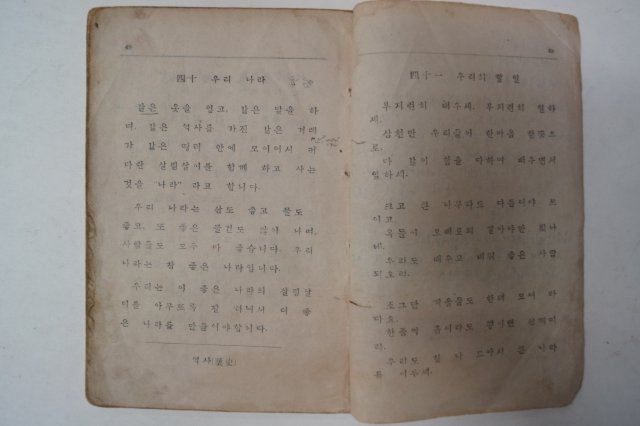 四十 우리 나라
같은 옷을 입고, 같은 말을 하
며, 같은 역사를 가진 같은 겨레
가 같은 땅덩 안에 모이어서 커
다란 살림살이를 함께 하고 사는
것을 "나라" 라고 합니다.
우리 나라는 산도 좋고 물도
좋고, 또 좋은 물건도 많이 나며,
사람들도 모두 다 좋습니다. 우리
나라는 참 좋은 나라입니다.
우리는 이 좋은 나라의 살림살
이를 아무쪼록 잘 하여서 더 좋
은 나라를 만들어야합니다.
역사(歷史)
四十一 우리의 할 일
부지런히 배우세. 부지런히 일하
세.
삼천만 우리들이 한마음 한뜻으
로.
다 같이 힘을 다하여 배우면서
일하세.
크고 큰 나무라도 다듬어야 쓰
이고
옥돌이 보배로되 갈아야만 빛나
네.
우리도 배우고 배워 좋은 사람
되오리.
조그만
우리도 힘 다 모아서 큰 나라